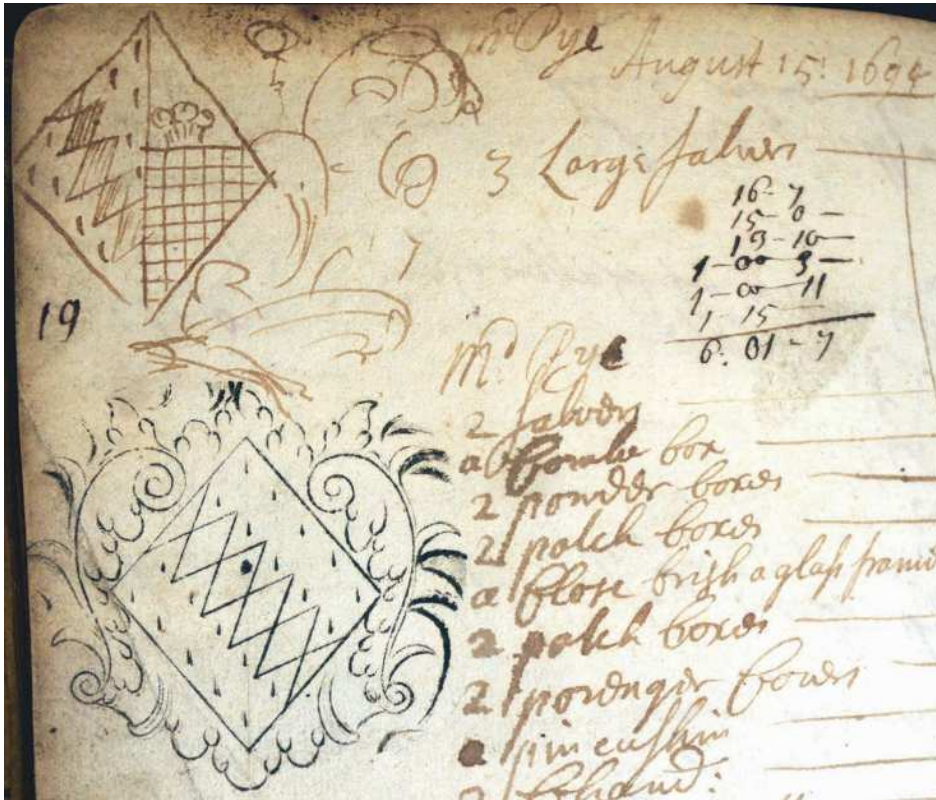 Mr Pye
August 15: 1694
3 Large salvers
16-7
15-0-
19-10-
1-00-3-
1-00-11
1-15
6:01-7
19
Md Pye
2 salvers
a Combe box
2 powder boxes
2 patch boxes
a Close brish a glass frame
2 patch boxes
2 porenger boxes
a pin cushin
2